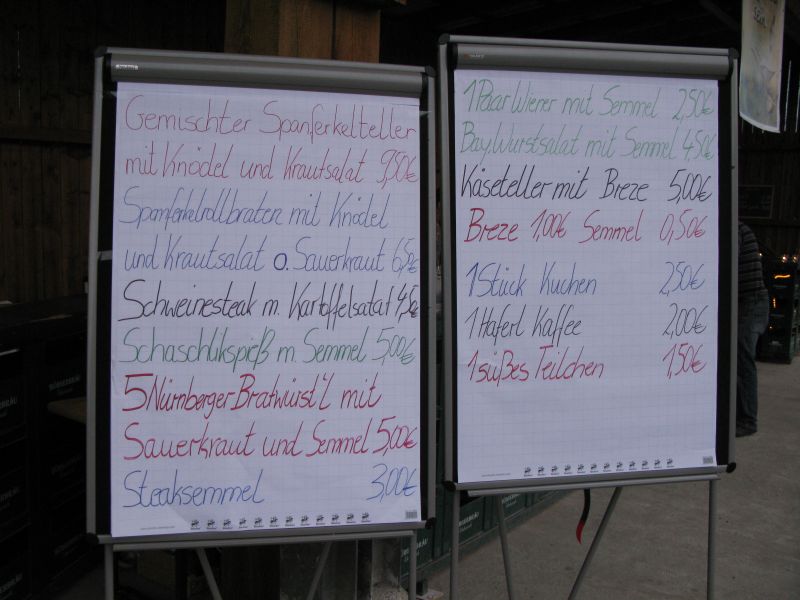 Gemischter Spanferkelteller
mit Knödel und Krautsalat 9,50€
Spanferkelrollbraten mit Knödel
und Krautsalat o. Sauerkraut 6,50€
Schweinesteak m. Kartoffelsalat 4,50€
Schaschlikspieß m. Semmel 5,00€
5 Nürnberger Bratwürst'l mit
Sauerkraut und Semmel 5,00€
Steaksemmel 3,00€
1 Paar Wiener mit Semmel 2,50€
Bay. Wurstsalat mit Semmel 4,50€
Käseteller mit Breze 5,00€
Breze 1,00€ Semmel 0,50€
1 Stück Kuchen 2,50€
1 Haferl Kaffee 2,00€
1 süßes Teilchen 1,50€